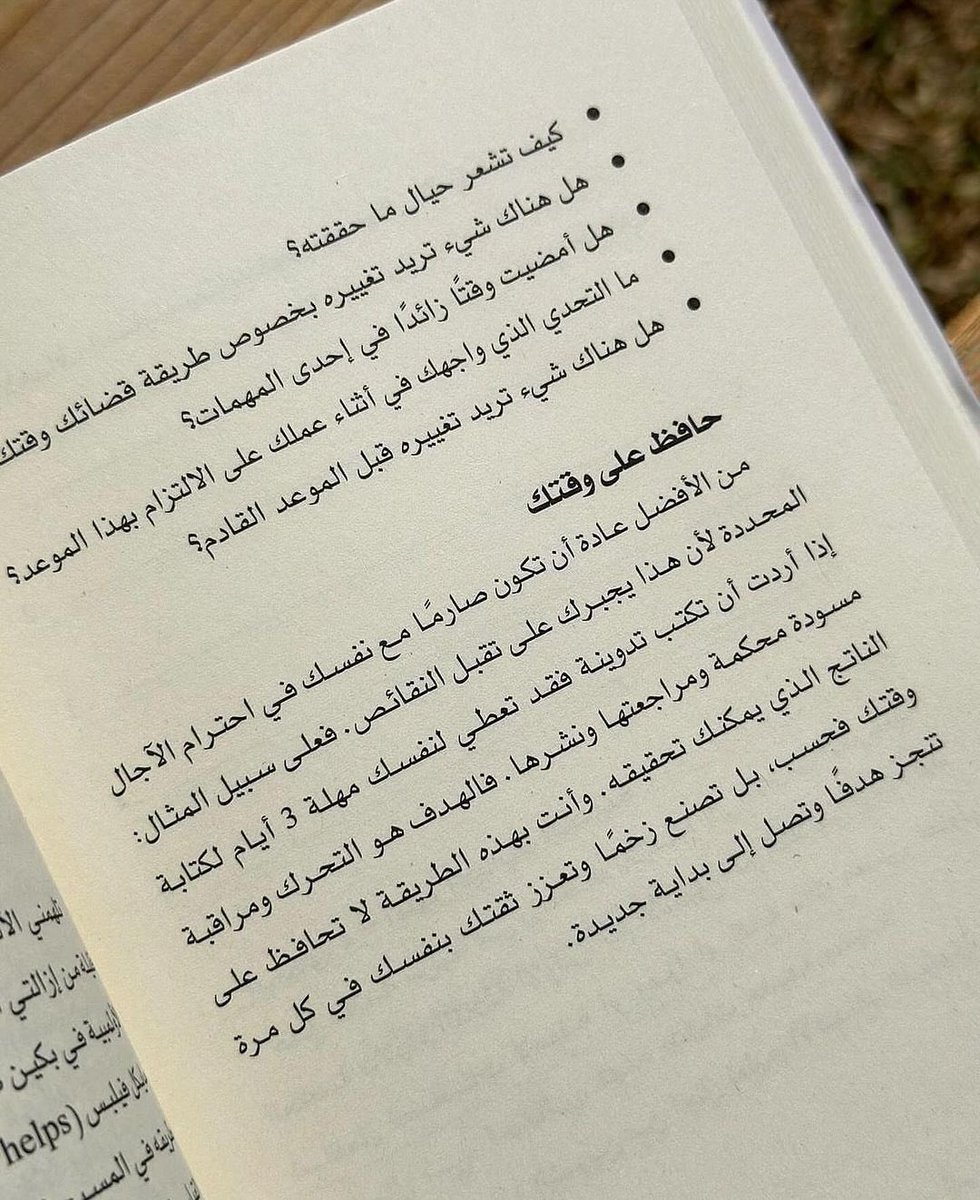 كيف تشعر حيال ما حققته؟
هل هناك شيء تريد تغييره بخصوص طريقة قضائك وقتك
هل أمضيت وقتًا زائدًا في إحدى المهمات؟
ما التحدي الذي واجهك في أثناء عملك على الالتزام بهذا الموعد؟
هل هناك شيء تريد تغييره قبل الموعد القادم؟
حافظ على وقتك
من الأفضل عادة أن تكون صارمًا مع نفسك في احترام الآجال
المحددة لأن هذا يجبرك على تقبل النقائص. فعلى سبيل المثال:
إذا أردت أن تكتب تدوينة فقد تعطي لنفسك مهلة 3 أيام لكتابة
مسودة محكمة ومراجعتها ونشرها. فالهدف هو التحرك ومراقبة
الناتج الذي يمكنك تحقيقه. وأنت بهذه الطريقة لا تحافظ على
وقتك فحسب، بل تصنع زخمًا وتعزز ثقتك بنفسك في كل مرة
تنجز هدفًا وتصل إلى بداية جديدة.
تلهمني
من إزالتي
في بكين
فيلبس (helps
في